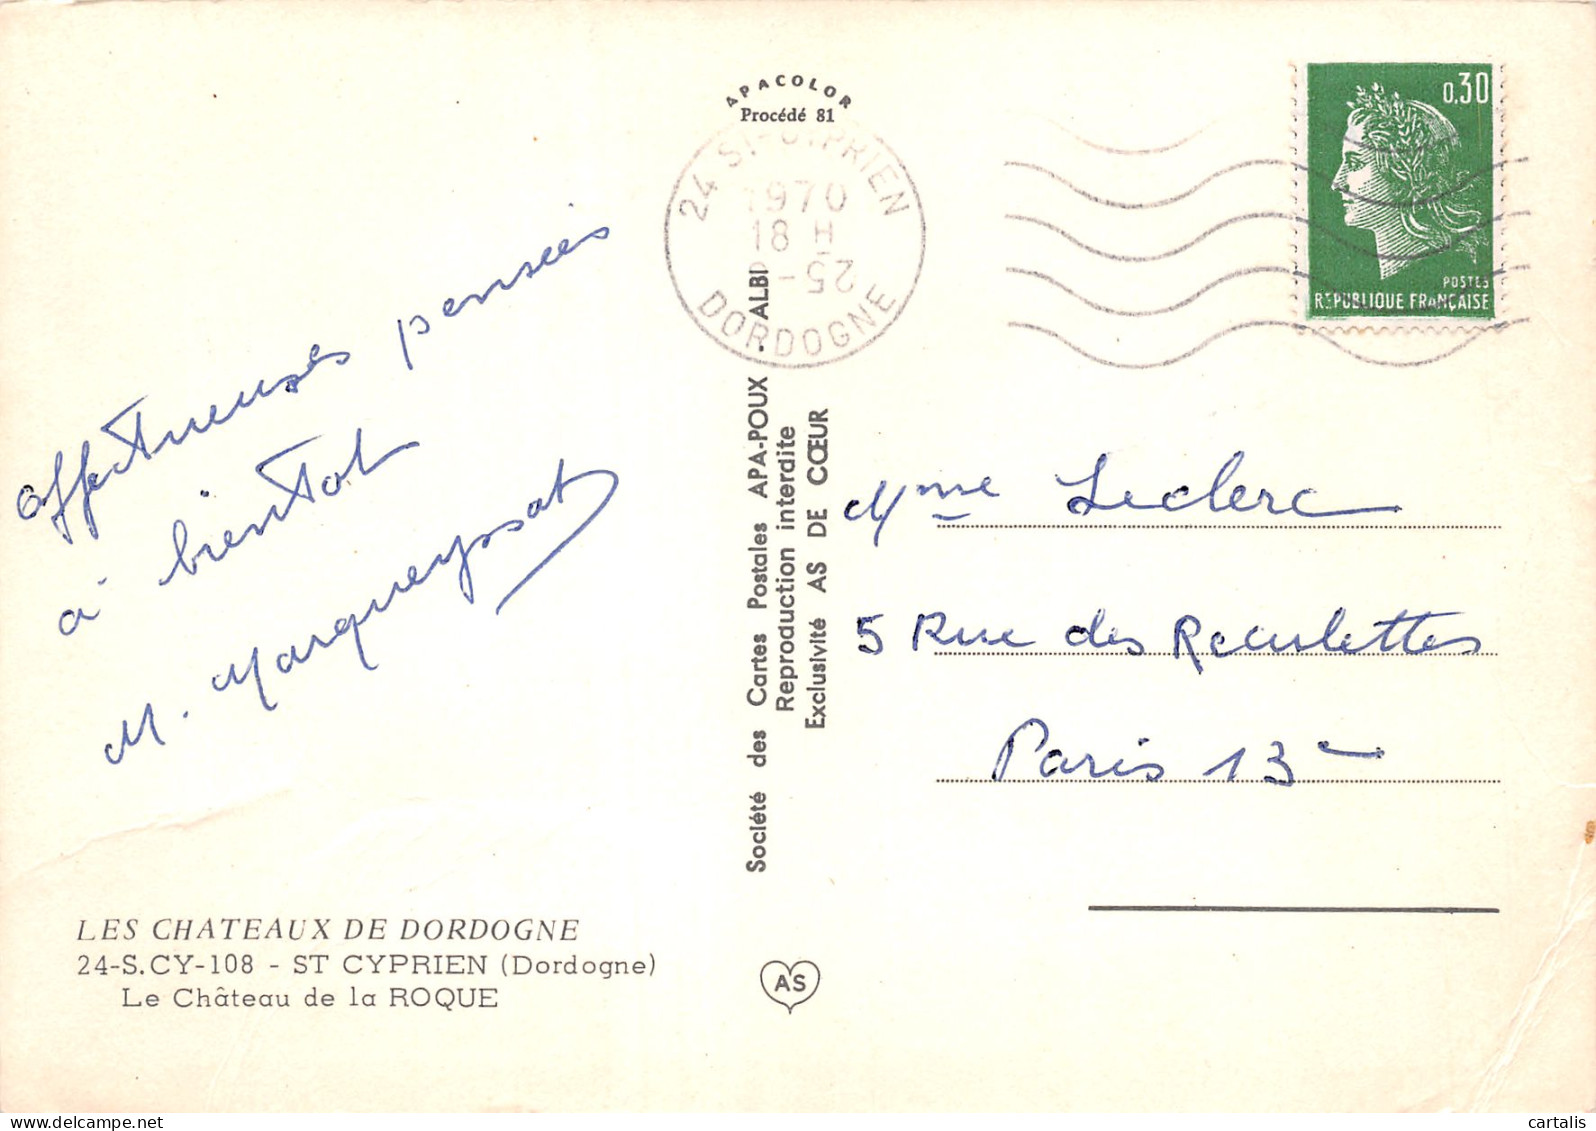 APACOLOR
Procédé 81
24 ST-CYPRIEN
1970
18 H
25-
DORDOGNE
0,30
POSTES
REPUBLIQUE FRANÇAISE
affectueuses pensées
à bientot
M. Marqueyssat
Société des Cartes Postales APA-POUX - ALBI
Reproduction interdite
Exclusivité AS DE CŒUR
Mme Leclerc
5 Rue des Reculettes
Paris 13e
LES CHATEAUX DE DORDOGNE
24-S.CY-108 - ST CYPRIEN (Dordogne)
Le Château de la ROQUE
AS
cartalis